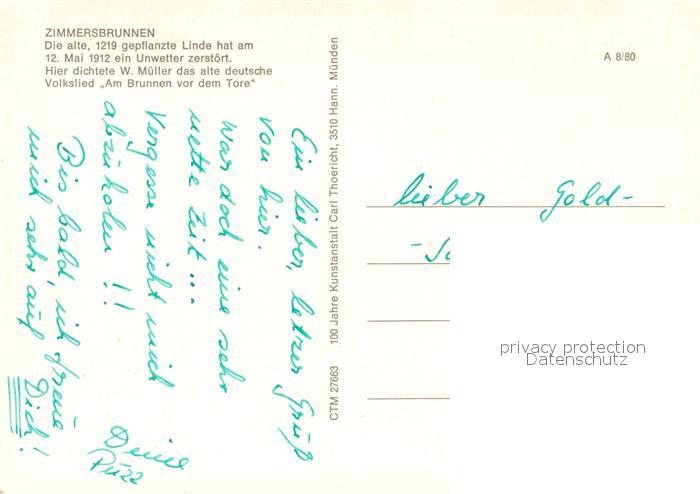 ZIMMERSBRUNNEN
Die alte, 1219 gepflanzte Linde hat am
12. Mai 1912 ein Unwetter zerstört.
Hier dichtete W. Müller das alte deutsche
Volkslied „Am Brunnen vor dem Tore"
Ein lieber, letzer Gruß
von hier.
War doch eine sehr
nette Zeit...
Vergesse nicht mich
abzuholen!!
Bis bald, ich freue
mich sehr auf
Dich!
Deine
CTM 27663 100 Jahre Kunstanstalt Carl Thoericht, 3510 Hann. Münden
A 8/80
lieber Gold-
privacy protection
Datenschutz